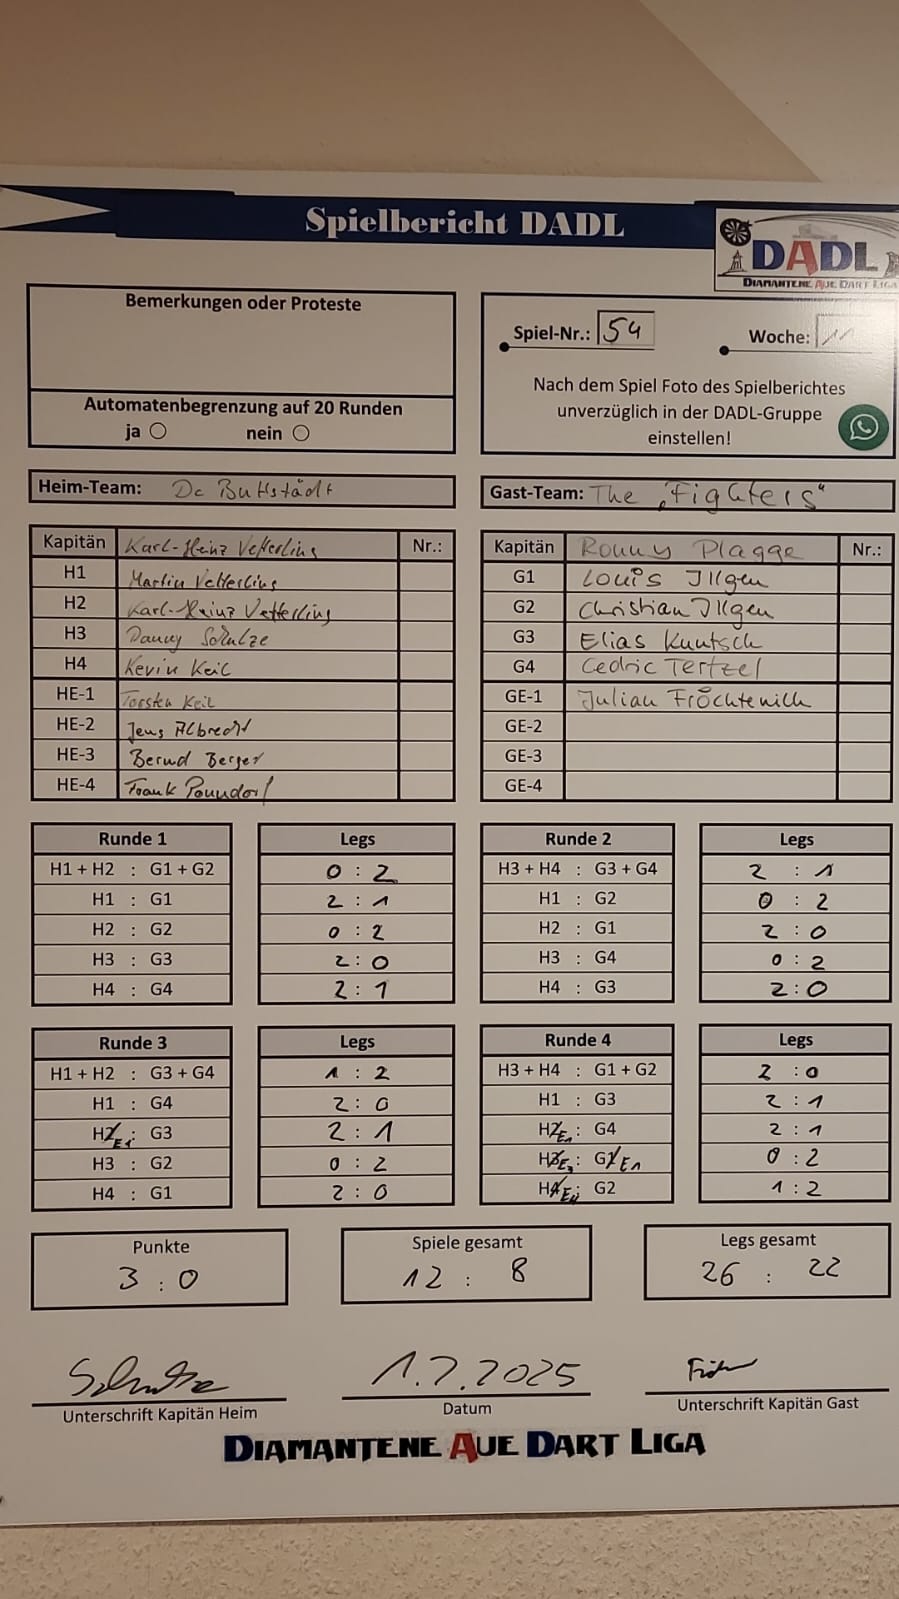 Spielbericht DADL
DADL
DIAMANTENE AUE DART LIGA
Bemerkungen oder Proteste
Automatenbegrenzung auf 20 Runden
ja nein
Spiel-Nr.: 54 Woche: 11
Nach dem Spiel Foto des Spielberichtes
unverzüglich in der DADL-Gruppe
einstellen!
Heim-Team: Dc Buttstädt
Gast-Team: The „Fighters“
Kapitän Karl-Heinz Vetterling Nr.:
H1 Martin Vetterling
H2 Karl-Heinz Vetterling
H3 Danny Schulze
H4 Kevin Keil
HE-1 Torsten Keil
HE-2 Jens Albrecht
HE-3 Bernd Berger
HE-4 Frank Ponndorf
Kapitän Ronny Plagge Nr.:
G1 Louis Illgen
G2 Christian Illgen
G3 Elias Kuntsch
G4 Cedric Tertzel
GE-1 Julian Fröchtenich
GE-2
GE-3
GE-4
Runde 1 Legs
H1 + H2 : G1 + G2 0 : 2
H1 : G1 2 : 1
H2 : G2 0 : 2
H3 : G3 2 : 0
H4 : G4 2 : 1
Runde 2 Legs
H3 + H4 : G3 + G4 2 : 1
H1 : G2 0 : 2
H2 : G1 2 : 0
H3 : G4 0 : 2
H4 : G3 2 : 0
Runde 3 Legs
H1 + H2 : G3 + G4 1 : 2
H1 : G4 2 : 0
H2 E1 : G3 2 : 1
H3 : G2 0 : 2
H4 : G1 2 : 0
Runde 4 Legs
H3 + H4 : G1 + G2 2 : 0
H1 : G3 2 : 1
H2 E1 : G4 2 : 1
H3 E3 : G1 E1 0 : 2
H4 : G2 1 : 2
Punkte
3 : 0
Spiele gesamt
12 : 8
Legs gesamt
26 : 22
Schulze
1.7.2025
Unterschrift Kapitän Heim
Datum
Unterschrift Kapitän Gast
DIAMANTENE AUE DART LIGA